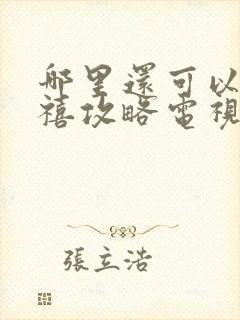 哪里還可以
禧攻略電視
張立浩